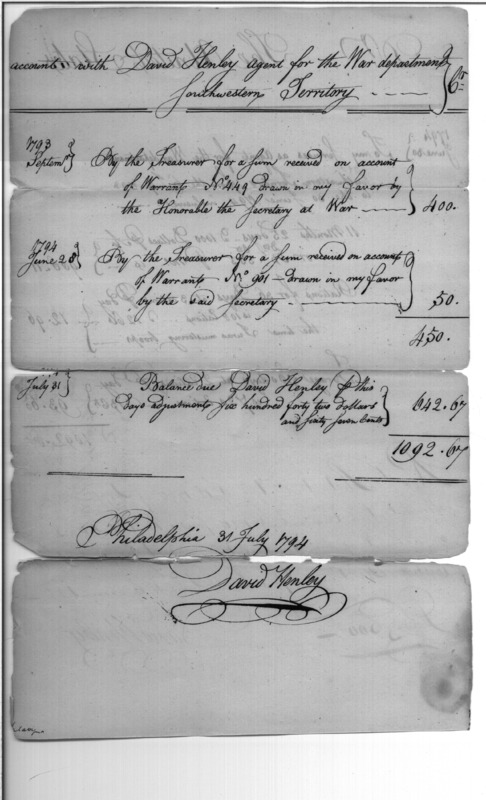 accounts with David Henley agent for the War department Cr
Southwestern Territory
1793
Septemr By the Treasurer for a sum received on account
of Warrant No 449 drawn in my favor by
the Honorable the Secretary at War 400.
1794
June 28 By the Treasurer for a sum received on account
of Warrant No 901 - drawn in my favor
by the said Secretary 50.
450.
July 31 Balance due David Henley this
days adjustment six hundred forty two dollars 642.67
and sixty seven Cents
1092.67
Philadelphia 31 July 1794
David Henley